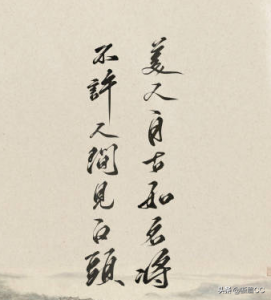 美人自古如名将
不許人間見白頭
头条@瑶畵CC